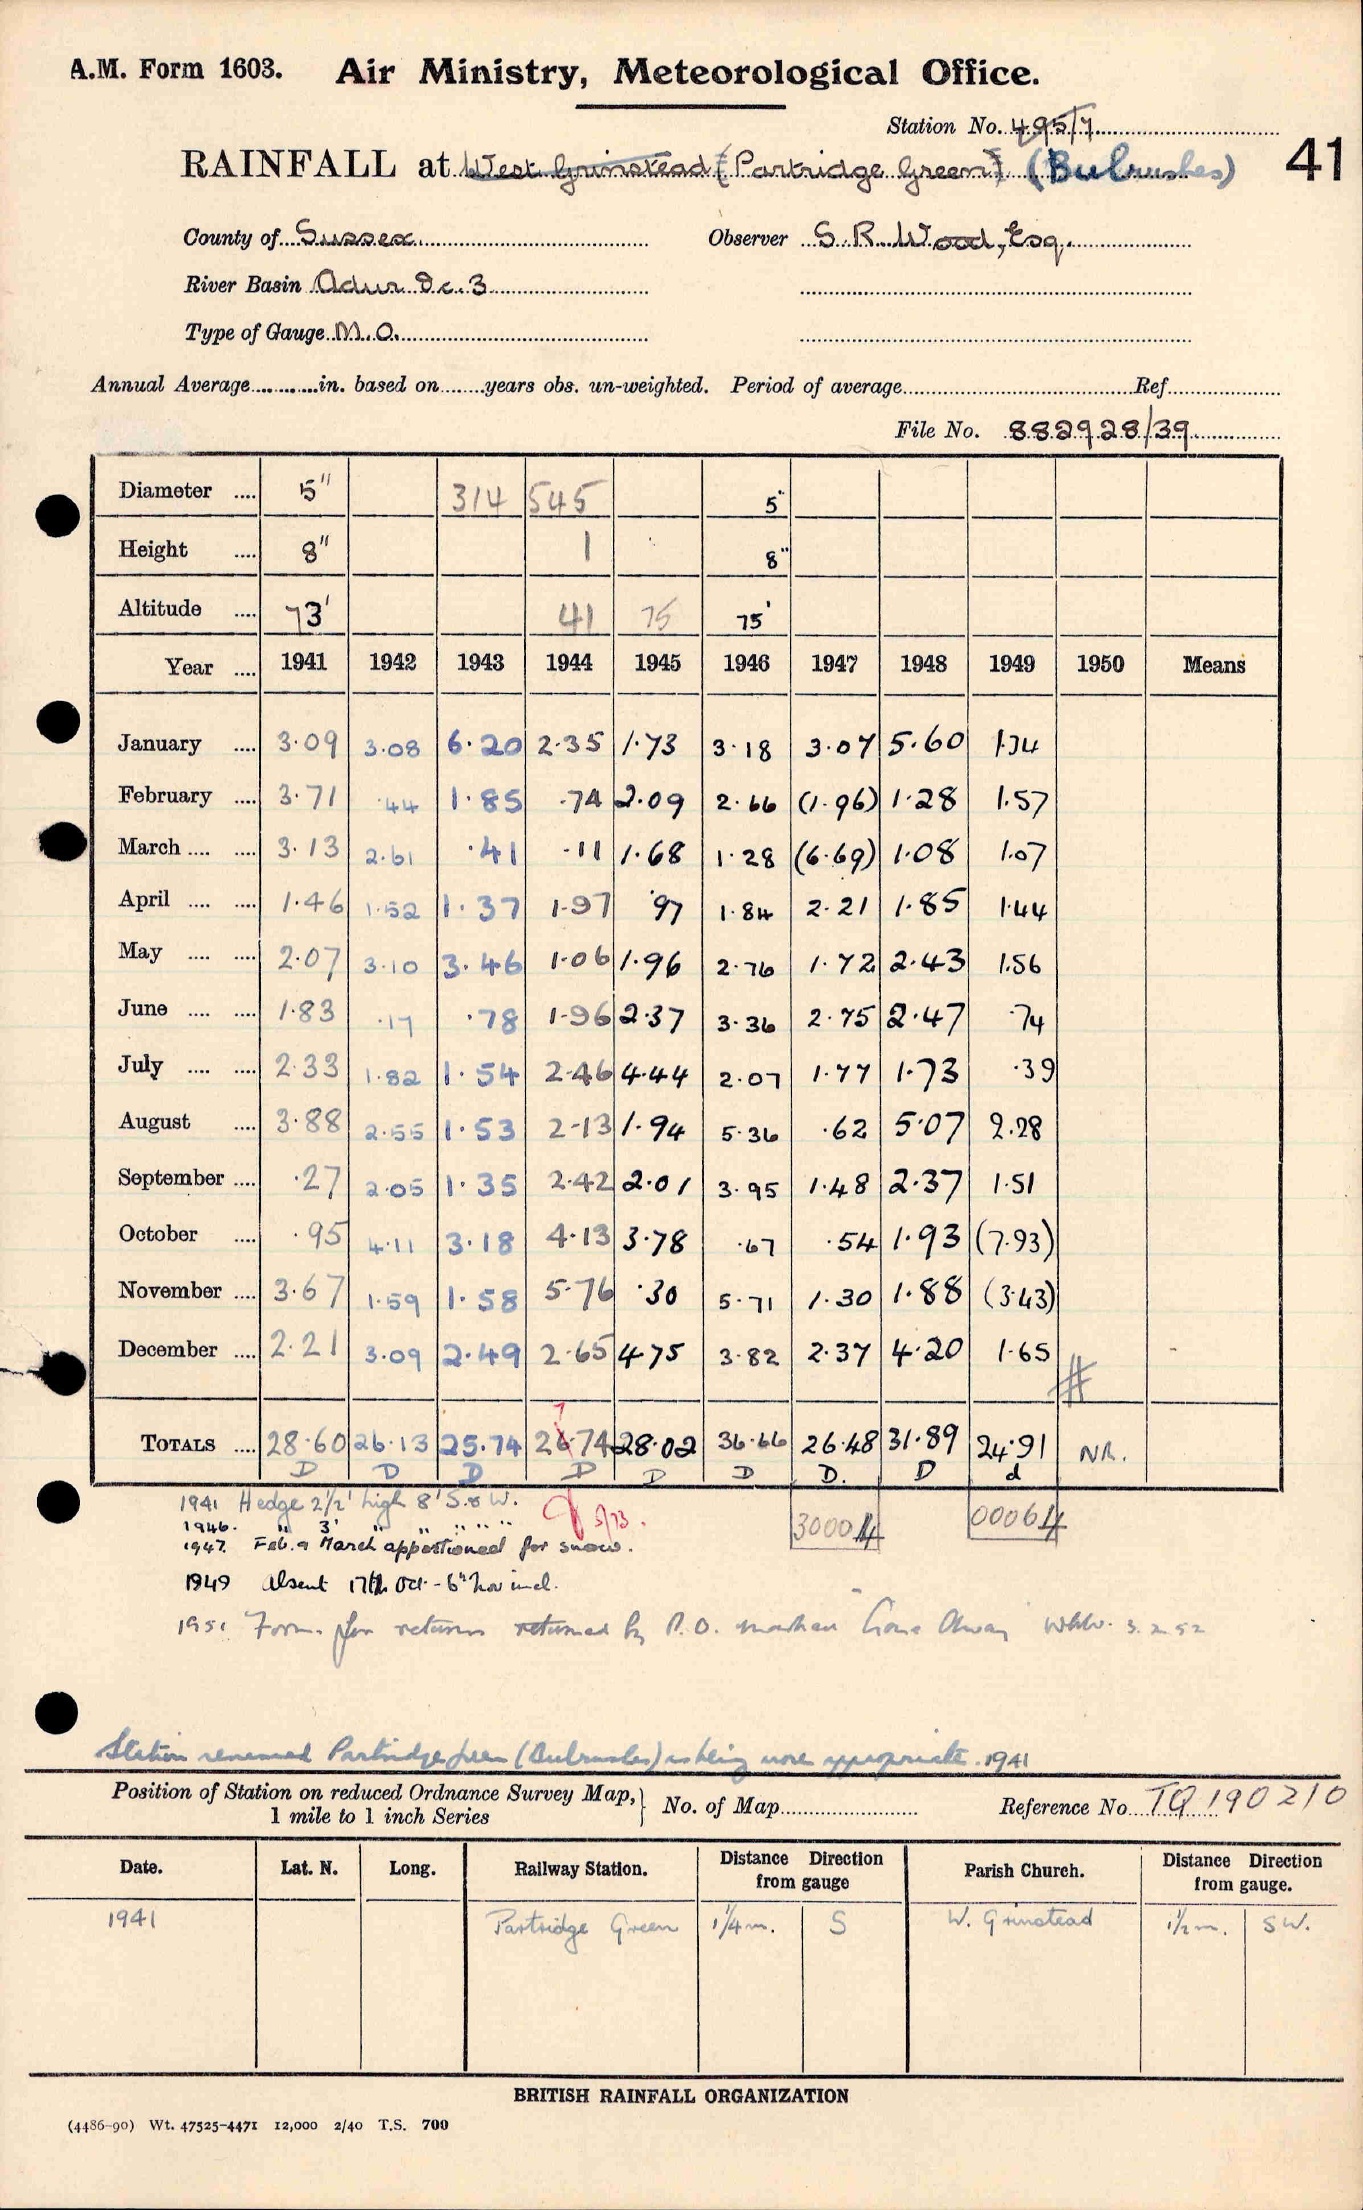 A.M. Form 1603. Air Ministry, Meteorological Office.
Station No. 495/7
RAINFALL at West Grinstead (Partridge Green) (Bulrushes) 41
County of Sussex Observer S. R. Wood, Esq.
River Basin Adur Dc. 3
Type of Gauge M.O.
Annual Average in. based on years obs. un-weighted. Period of average Ref
File No. 882928/39
Diameter 5" 314 545 5"
Height 8" 1 8"
Altitude 73' 41 75 75'
Year 1941 1942 1943 1944 1945 1946 1947 1948 1949 1950 Means
January 3.09 3.08 6.20 2.35 1.73 3.18 3.07 5.60 1.34
February 3.71 .44 1.85 .74 2.09 2.66 (1.96) 1.28 1.57
March 3.13 2.61 .41 .11 1.68 1.28 (6.69) 1.08 1.07
April 1.46 1.52 1.37 1.97 .97 1.84 2.21 1.85 1.44
May 2.07 3.10 3.46 1.06 1.96 2.76 1.72 2.43 1.56
June 1.83 .17 .78 1.96 2.37 3.36 2.75 2.47 .74
July 2.33 1.82 1.54 2.46 4.44 2.07 1.77 1.73 .39
August 3.88 2.55 1.53 2.13 1.94 5.36 .62 5.07 2.28
September .27 2.05 1.35 2.42 2.01 3.95 1.48 2.37 1.51
October .95 4.11 3.18 4.13 3.78 .67 .54 1.93 (7.93)
November 3.67 1.59 1.58 5.76 .30 5.71 1.30 1.88 (3.43)
December 2.21 3.09 2.49 2.65 4.75 3.82 2.37 4.20 1.65
#
7
TOTALS 28.60 26.13 25.74 26.74 28.02 36.66 26.48 31.89 24.91 NR.
D D D D D D D. D d
1941 Hedge 2½' high 8' S. & W.
1946. " 3' " " " " "
5/73.
30004 00064
1947. Feb. & March apportioned for snow.
1949 Absent 17th Oct - 6th Nov incl.
1951 Form for returns returned by P.O. marked "Gone Away" 3.2.52
Station renamed Partridge Green (Bulrushes) as being more appropriate. 1941
Position of Station on reduced Ordnance Survey Map, 1 mile to 1 inch Series } No. of Map Reference No. TQ 190210
Date. Lat. N. Long. Railway Station. Distance Direction from gauge Parish Church. Distance Direction from gauge.
1941 Partridge Green 1¼ m. S W. Grinstead 1½ m. SW.
BRITISH RAINFALL ORGANIZATION
(4486-90) Wt. 47525-4471 12,000 2/40 T.S. 700